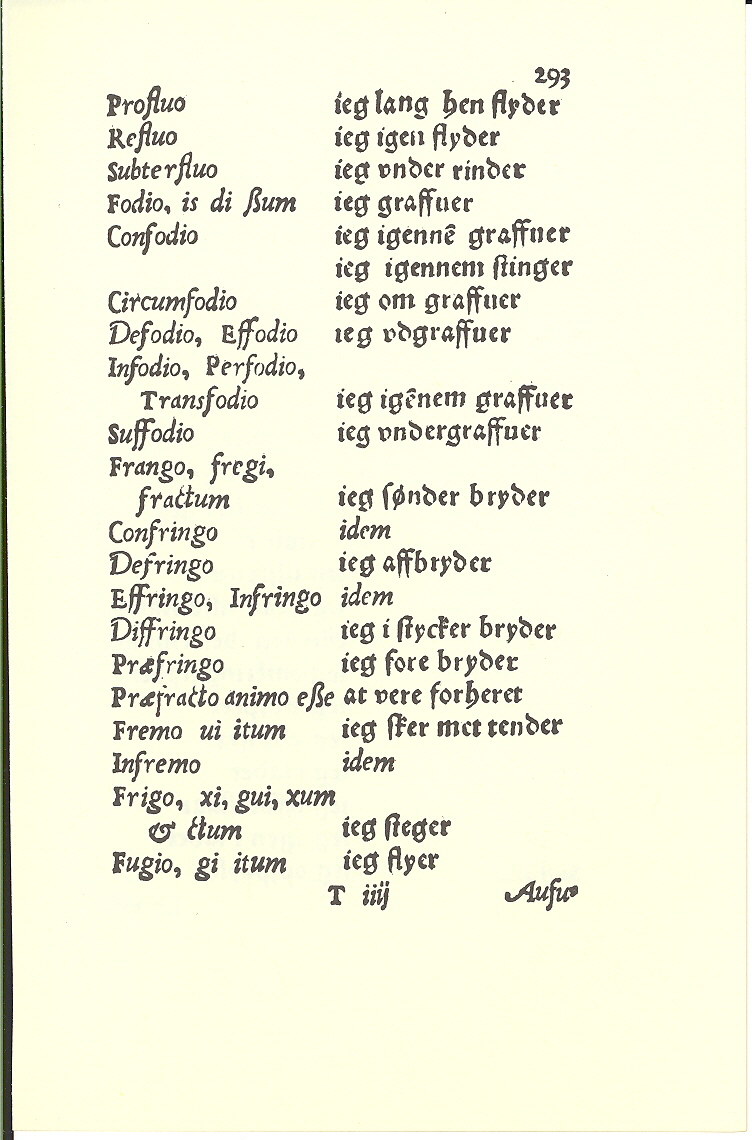 293
Profluo ieg lang hen flyder
Refluo ieg igen flyder
Subterfluo ieg vnder rinder
Fodio, is di ßum ieg graffuer
Confodio ieg igennē graffuer
ieg igennem stinger
Circumfodio ieg om graffuer
Defodio, Effodio ieg vdgraffuer
Infodio, Perfodio,
Transfodio ieg igēnem graffuer
Suffodio ieg vndergraffuer
Frango, fregi,
fractum ieg sønder bryder
Confringo idem
Defringo ieg affbryder
Effringo, Infringo idem
Diffringo ieg i stycker bryder
Præfringo ieg fore bryder
Præfracto animo eße at vere forheret
Fremo ui itum ieg sker met tender
Infremo idem
Frigo, xi, gui, xum
& ctum ieg steger
Fugio, gi itum ieg flyer
T iiij Aufu⸗